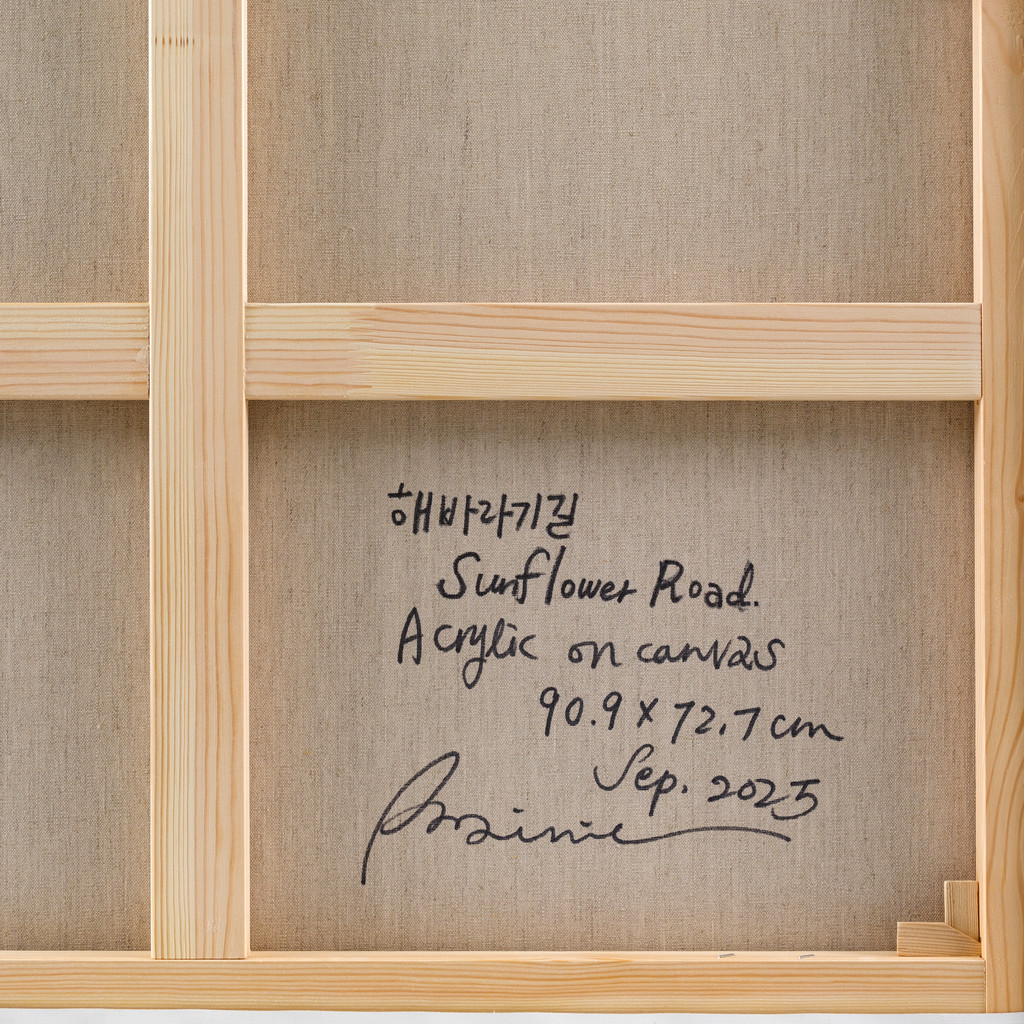 해바라기길
Sunflower Road.
Acrylic on canvas
90.9 x 72.7 cm
Sep. 2025